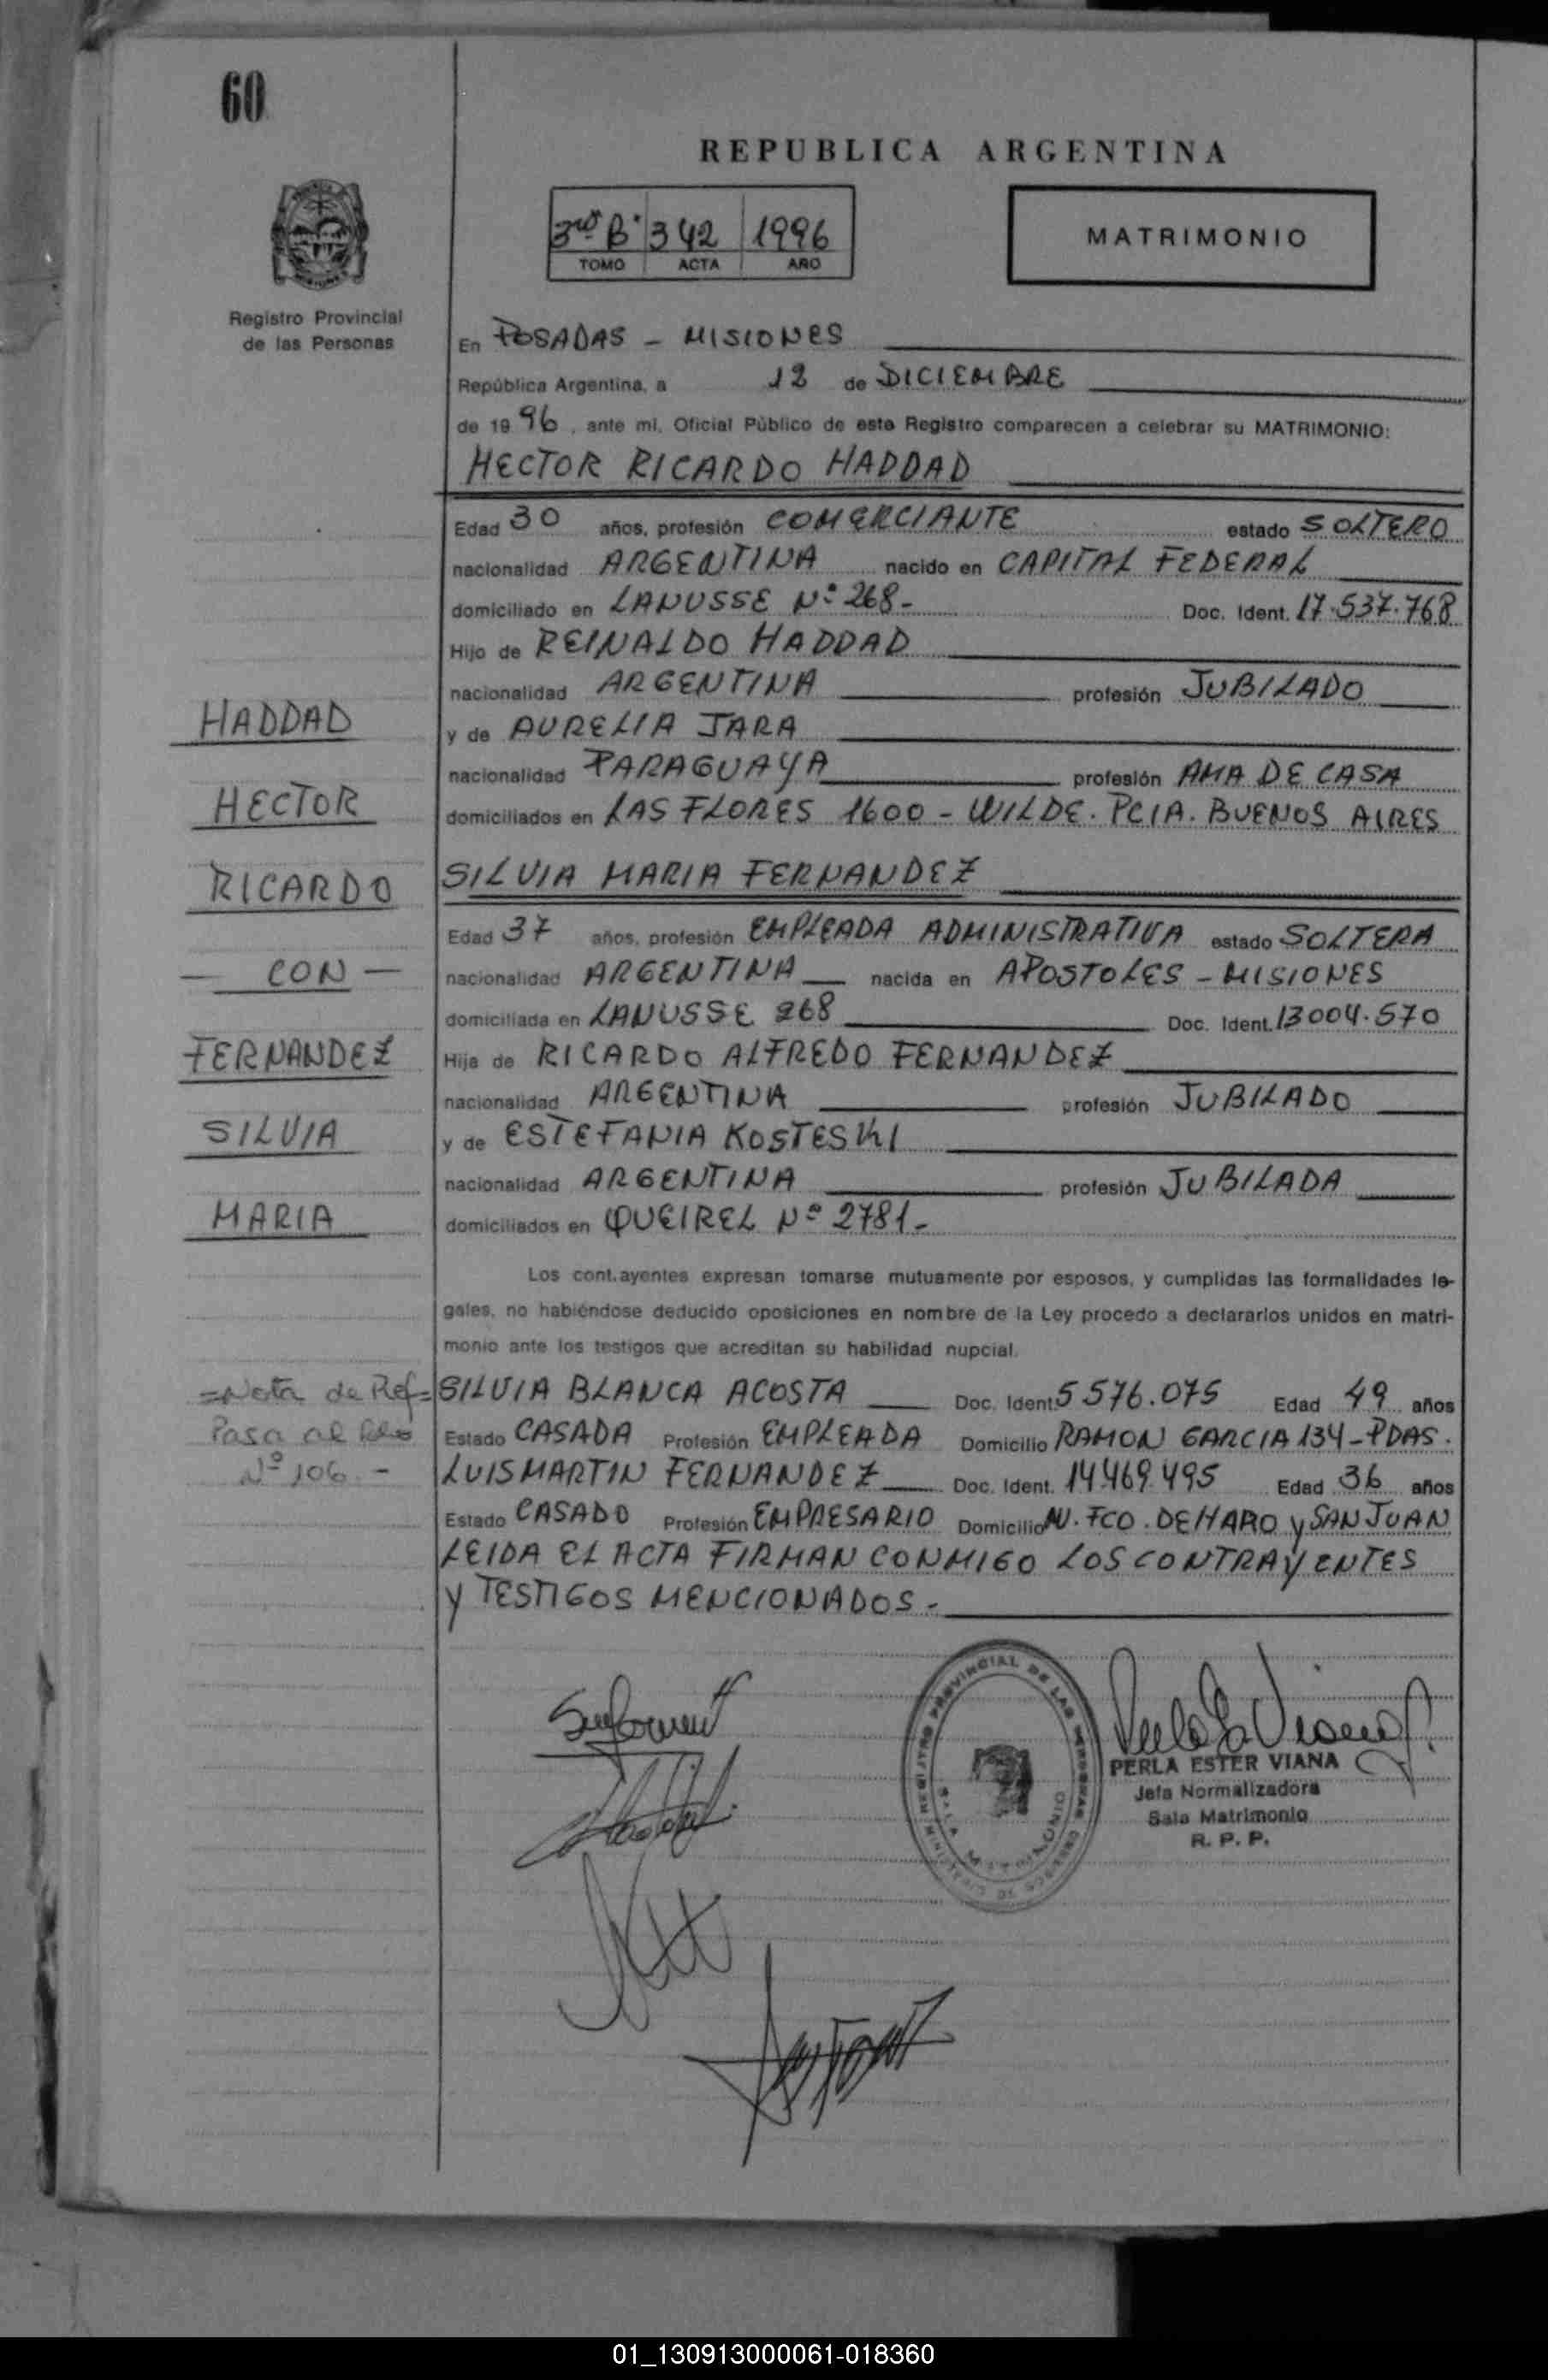 60
REPUBLICA ARGENTINA
3ro B· 342 1996
TOMO ACTA AÑO
MATRIMONIO
Registro Provincial
de las Personas
En POSADAS - MISIONES
República Argentina, a 12 de DICIEMBRE
de 19 96, ante mí, Oficial Público de este Registro comparecen a celebrar su MATRIMONIO:
HECTOR RICARDO HADDAD
Edad 30 años, profesión COMERCIANTE estado SOLTERO
nacionalidad ARGENTINA nacido en CAPITAL FEDERAL
domiciliado en LANUSSE Nº 268- Doc. Ident. 17.537.768
Hijo de REINALDO HADDAD
nacionalidad ARGENTINA profesión JUBILADO
y de AURELIA JARA
nacionalidad PARAGUAYA profesión AMA DE CASA
domiciliados en LAS FLORES 1600 - WILDE. PCIA. BUENOS AIRES
SILVIA MARIA FERNANDEZ
Edad 37 años, profesión EMPLEADA ADMINISTRATIVA estado SOLTERA
nacionalidad ARGENTINA nacida en APOSTOLES - MISIONES
domiciliada en LANUSSE 268 Doc. Ident. 13004.570
Hija de RICARDO ALFREDO FERNANDEZ
nacionalidad ARGENTINA profesión JUBILADO
y de ESTEFANIA KOSTESKI
nacionalidad ARGENTINA profesión JUBILADA
domiciliados en QUEIREL Nº 2781-
HADDAD
HECTOR
RICARDO
- CON -
FERNANDEZ
SILVIA
MARIA
Los cont.ayentes expresan tomarse mutuamente por esposos, y cumplidas las formalidades le-
gales, no habiéndose deducido oposiciones en nombre de la Ley procedo a declararlos unidos en matri-
monio ante los testigos que acreditan su habilidad nupcial.
=Nota de Ref=
Pasa al folio
Nº 106.-
SILVIA BLANCA ACOSTA Doc. Ident. 5576.075 Edad 49 años
Estado CASADA Profesión EMPLEADA Domicilio RAMON GARCIA 134-PDAS.
LUIS MARTIN FERNANDEZ Doc. Ident. 14.469.495 Edad 36 años
Estado CASADO Profesión EMPRESARIO Domicilio AV. FCO. DE HARO y SAN JUAN
LEIDA EL ACTA FIRMAN CONMIGO LOS CONTRAYENTES
Y TESTIGOS MENCIONADOS-
REGISTRO PROVINCIAL DE LAS PERSONAS
SALA MATRIMONIO
PERLA ESTER VIANA
Jefa Normalizadora
Sala Matrimonio
R. P. P.
01_130913000061-018360